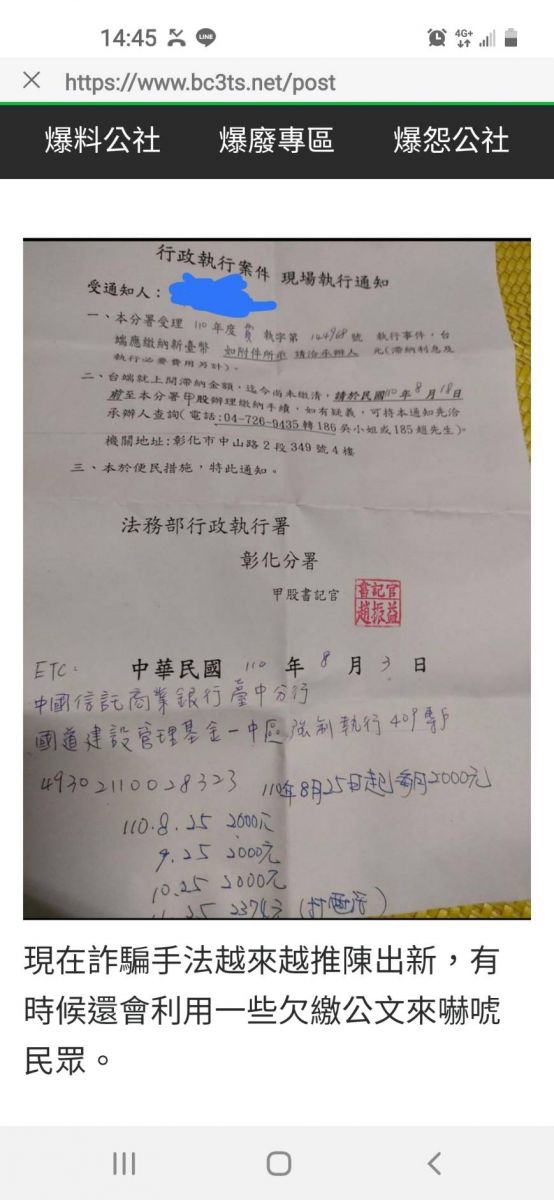 14:45
LINE
4G+
https://www.bc3ts.net/post
爆料公社 爆廢專區 爆怨公社
行政執行案件 現場執行通知
受通知人:
一、本分署受理 110 年度 費 執字第 144968 號 執行事件,台
端應繳納新臺幣 如附件所示 請洽承辦人 元(滯納利息及
執行必要費用另計)。
二、台端就上開滯納金額,迄今尚未繳清,請於民國110年8月18日
前至本分署甲股辦理繳納手續,如有疑義,可持本通知先洽
承辦人查詢(電話:04-726-9435轉186吳小姐或185趙先生)。
機關地址:彰化市中山路2段349號4樓
三、本於便民措施,特此通知。
法務部行政執行署
彰化分署
甲股書記官
書記官
趙振益
中華民國 110 年 8 月 3 日
ETC.
中國信託商業銀行臺中分行
國道建設管理基金-中區強制執行409專戶
49302110028323 110年8月25日起每月2000元
110.8.25 2000元
9.25 2000元
10.25 2000元
11.25 2374元
現在詐騙手法越來越推陳出新,有
時候還會利用一些欠繳公文來嚇唬
民眾。